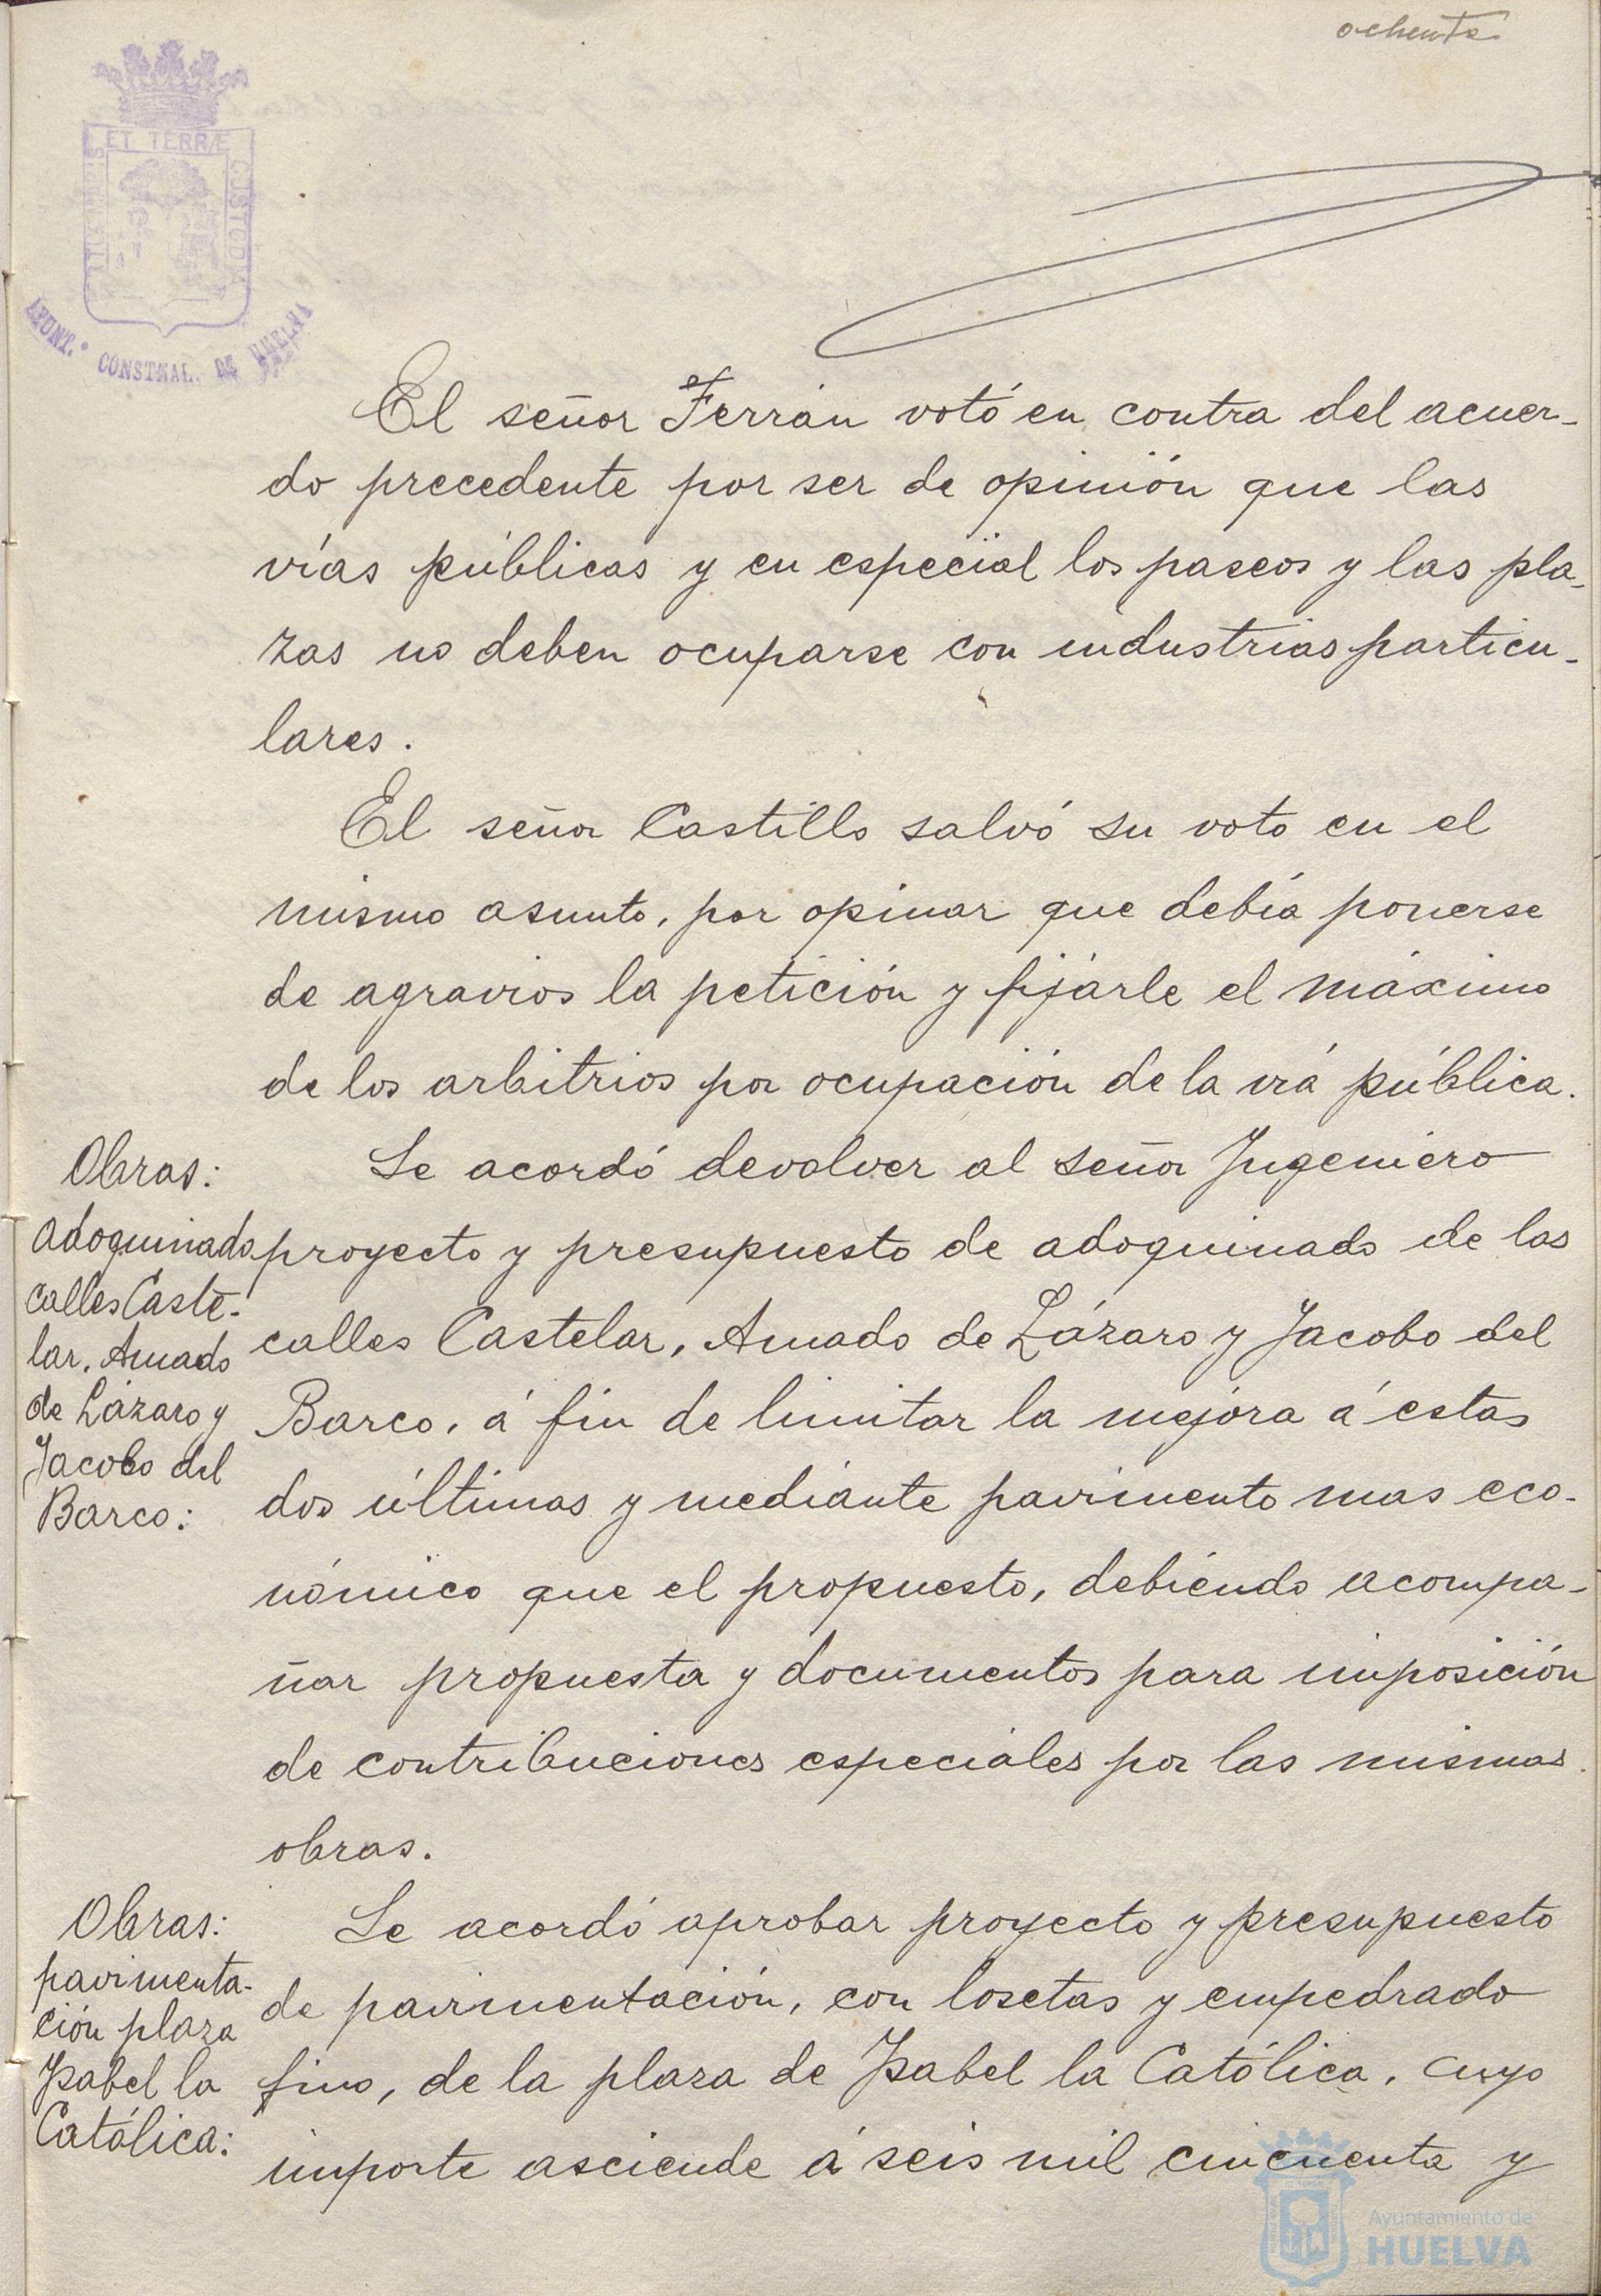 ochenta
PORTUS MARIS ET TERRÆ CUSTODIA
AYUNT.º CONSTNAL. DE HUELVA
El señor Ferrán votó en contra del acuer-
do precedente por ser de opinión que las
vías públicas y en especial los paseos y las pla-
zas no deben ocuparse con industrias particu-
lares.
El señor Castillo salvó su voto en el
mismo asunto, por opinar que debía ponerse
de agravios la petición y fijárle el máximo
de los arbitrios por ocupación de la vía pública.
Obras:
adoquinado
calles Caste-
lar, Amado
de Lázaro y
Jacobo del
Barco:
Se acordó devolver al señor Ingeniero
proyecto y presupuesto de adoquinado de las
calles Castelar, Amado de Lázaro y Jacobo del
Barco, á fin de limitar la mejora á estas
dos últimas y mediante pavimento mas eco-
nómico que el propuesto, debiendo acompa-
ñar propuesta y documentos para imposición
de contribuciones especiales por las mismas
obras.
Obras:
pavimenta-
ción plaza
Isabel la
Católica:
Se acordó aprobar proyecto y presupuesto
de pavimentación, con losetas y empedrado
fino, de la plaza de Isabel la Católica, cuyo
importe asciende á seis mil cincuenta y
Ayuntamiento de
HUELVA